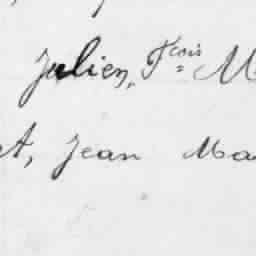 Julien, Fcois M
t, Jean Ma